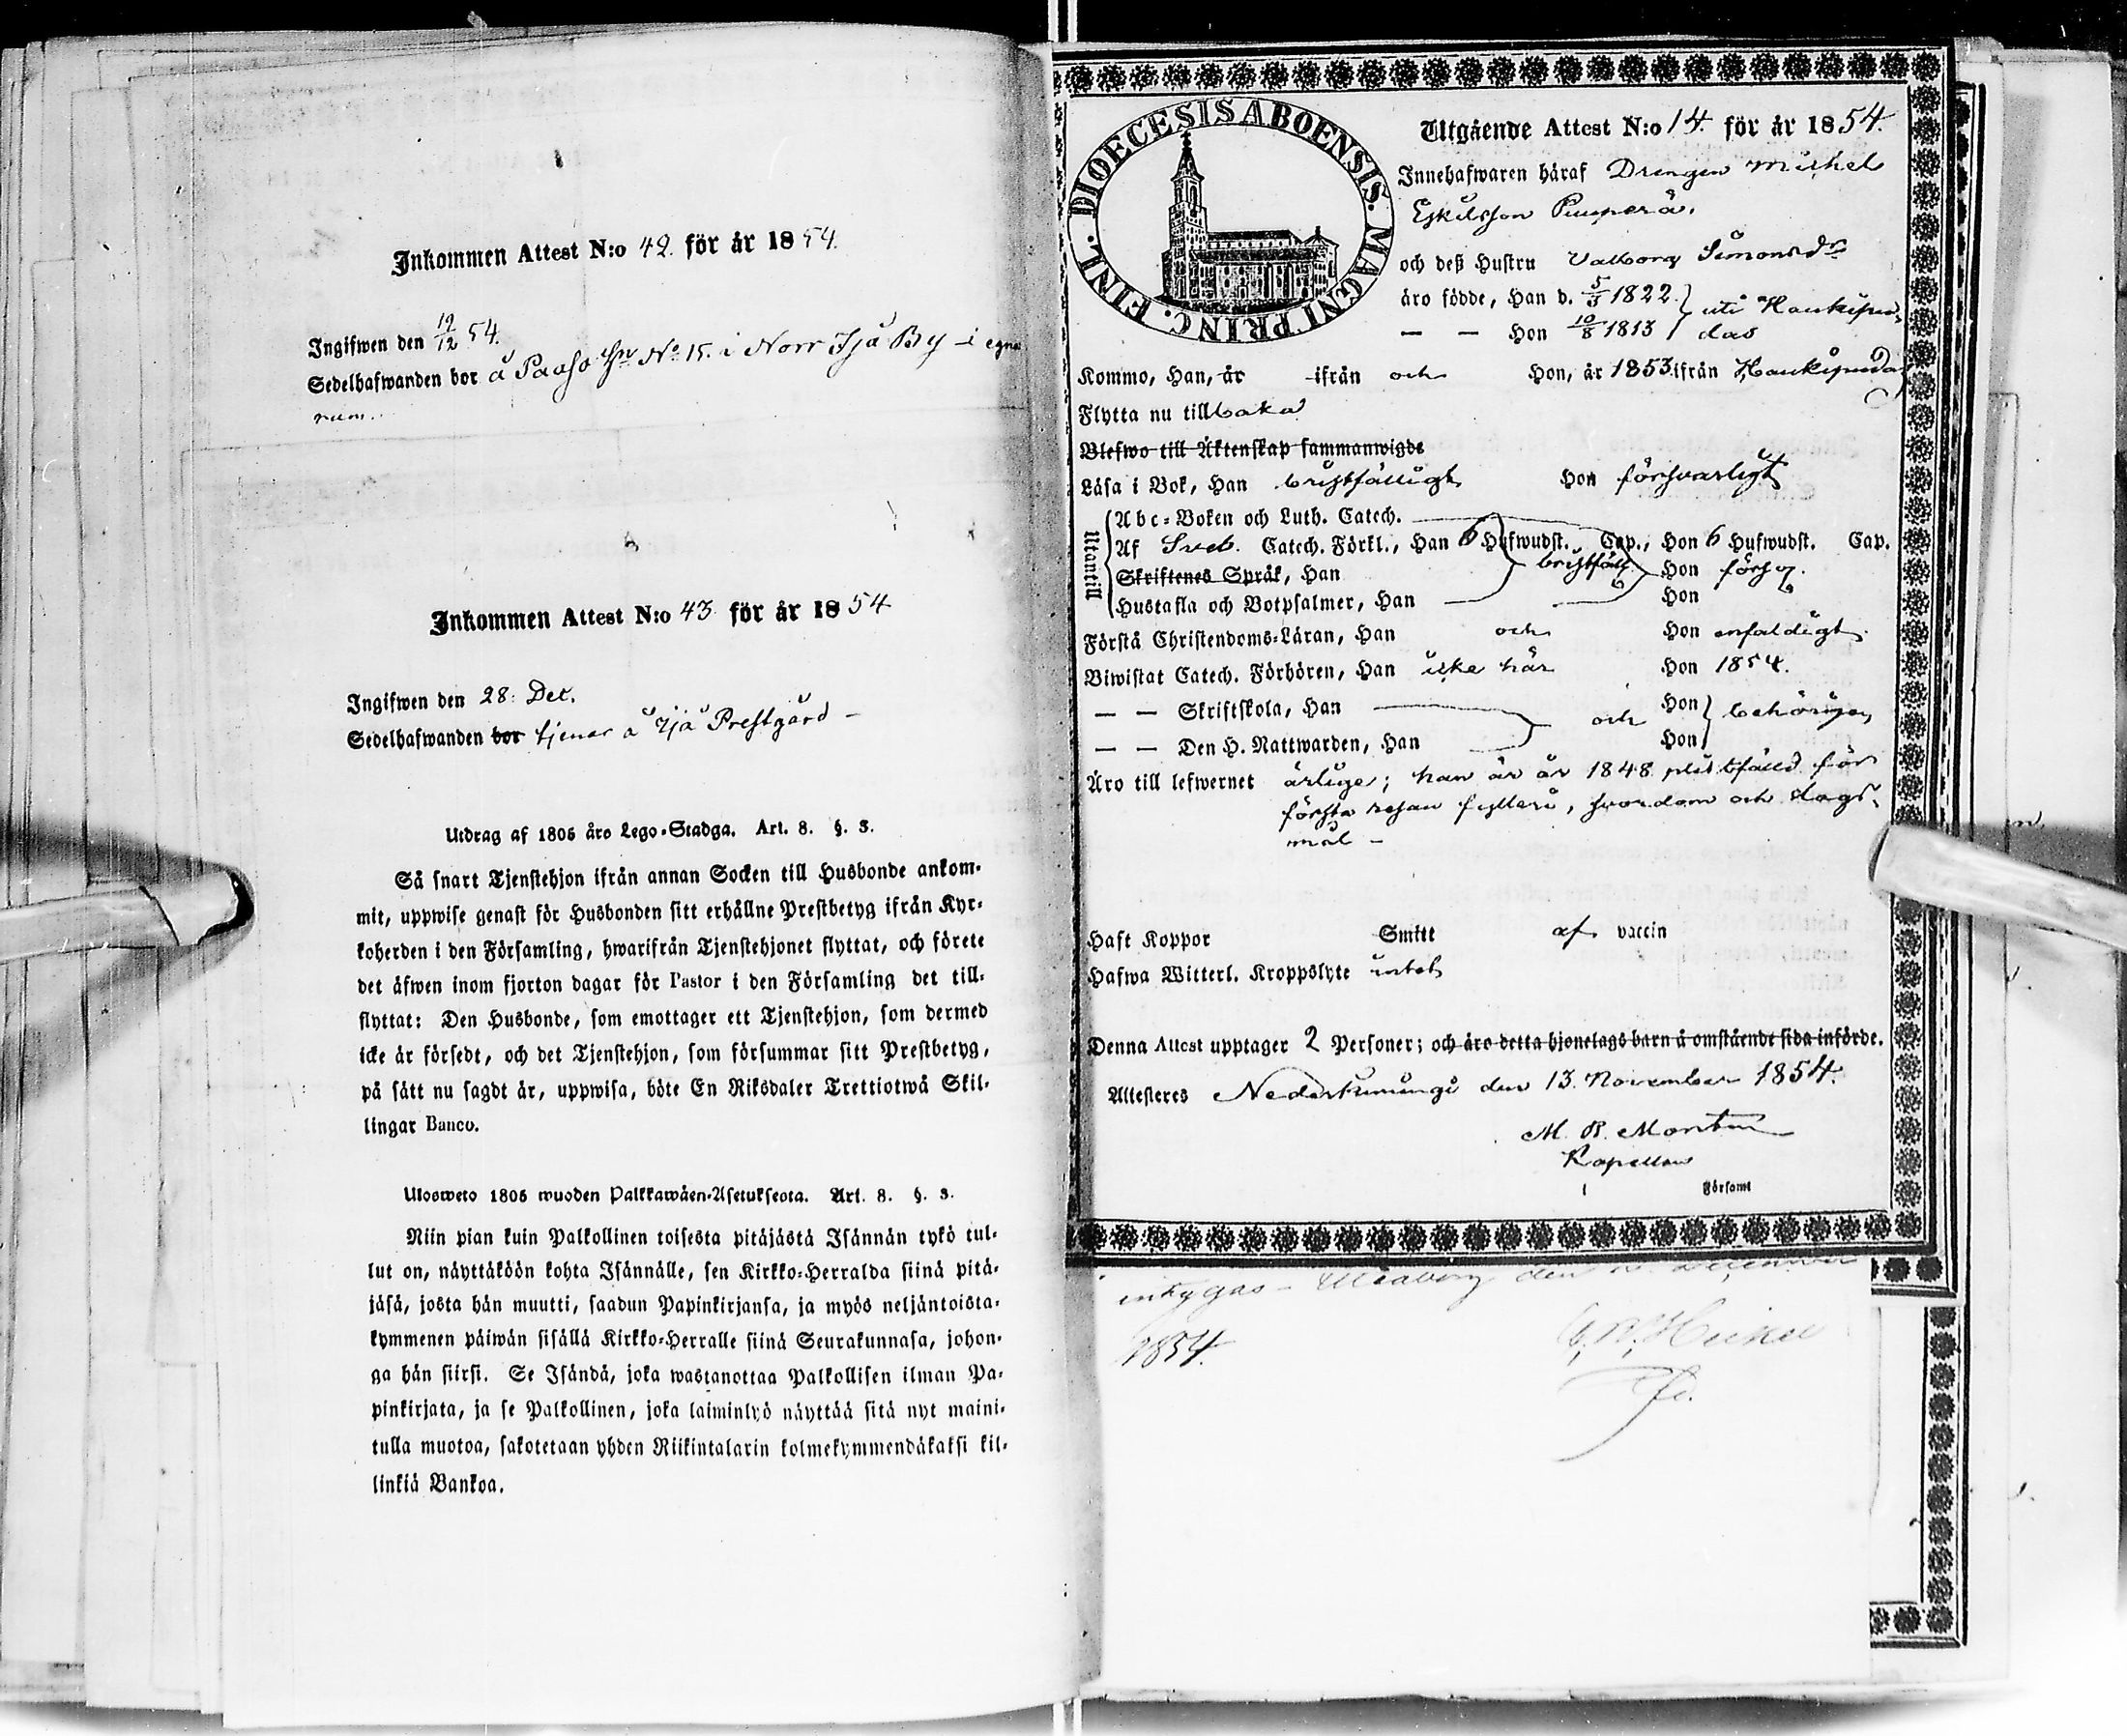 Inkommen Attest N:o 42. för år 1854.
Ingifwen den 19/12 54.
Sedelhafwanden bor å Paaso hn No 15. i Norr Ijå By – i egna
rum.
Inkommen Attest N:o 43 för år 1854
Ingifwen den 28. Dec.
Sedelhafwanden bor tjenar å Ijå Prestgård –
Utdrag af 1805 års Lego-Stadga. Art. 8. §. 3.
Så snart Tjenstehjon ifrån annan Socken till Husbonde ankom-
mit, uppwise genast för Husbonden sitt erhållne Prestbetyg ifrån Kyr-
koherden i den Församling, hwarifrån Tjenstehjonet flyttat, och förete
det äfwen inom fjorton dagar för Pastor i den Församling det till-
flyttat: Den Husbonde, som emottager ett Tjenstehjon, som dermed
icke är försedt, och det Tjenstehjon, som försummar sitt Prestbetyg,
på sätt nu sagdt är, uppwisa, böte En Riksdaler Trettiotwå Skil-
lingar Banco.
Ulosweto 1805 wuoden Palkkawäen-Asetuksesta. Art. 8. §. 3.
Niin pian kuin Palkollinen toisesta pitäjästä Isännän tykö tul-
lut on, näyttäköön kohta Isännälle, sen Kirkko-Herralda siinä pitä-
jäsä, josta hän muutti, saadun Papinkirjansa, ja myös neljäntoista-
kymmenen päiwän sisällä Kirkko-Herralle siinä Seurakunnasa, johon-
ga hän siirsi. Se Isändä, joka wastanottaa Palkollisen ilman Pa-
pinkirjata, ja se Palkollinen, joka laiminlyö näyttää sitä nyt maini-
tulla muotoa, sakotetaan yhden Riikintalarin kolmekymmendäkaksi kil-
linkiä Bankoa.
DIOECESIS ABOENSIS. MAGNI PRINC. FINL.
Utgående Attest N:o 14. för år 1854.
Innehafwaren häraf Drengen Michel
Eskilsson Puuperä.
och deß Hustru Valborg Simonsdr
äro födde, Han d. 5/5 1822. } uti Haukipu-
— — Hon 10/8 1813 } das
Kommo, Han, år ifrån och Hon, år 1853 ifrån Haukipudas
Flytta nu tillbaka
Blefwo till Äktenskap sammanwigde
Läsa i Bok, Han bristfälligt Hon försvarligt
Utantill
Abc-Boken och Luth. Catech.
Af Sveb. Catech. Förkl., Han 6 Hufwudst. Cap., Hon 6 Hufwudst. Cap.
Skriftenes Språk, Han bristfäll. Hon försv.
Hustafla och Botpsalmer, Han Hon
Förstå Christendoms-Läran, Han och Hon enfaldigt.
Biwistat Catech. Förhören, Han icke här Hon 1854.
— — Skriftskola, Han och Hon } behörigen
— — Den H. Nattwarden, Han Hon
Äro till lefwernet ärliga; han är år 1848 pliktfälld för
första resan fylleri, svordom och slags-
mål –
Haft Koppor Smitt af vaccin
Hafwa Witterl. Kroppslyte intet
Denna Attest upptager 2 Personer; och äro detta hjonelags barn å omstående sida införde.
Attesteres Nederkiminge den 13. November 1854.
M. R.
Kapellan
i Församl
intygas – Uleåborg den December
1854.